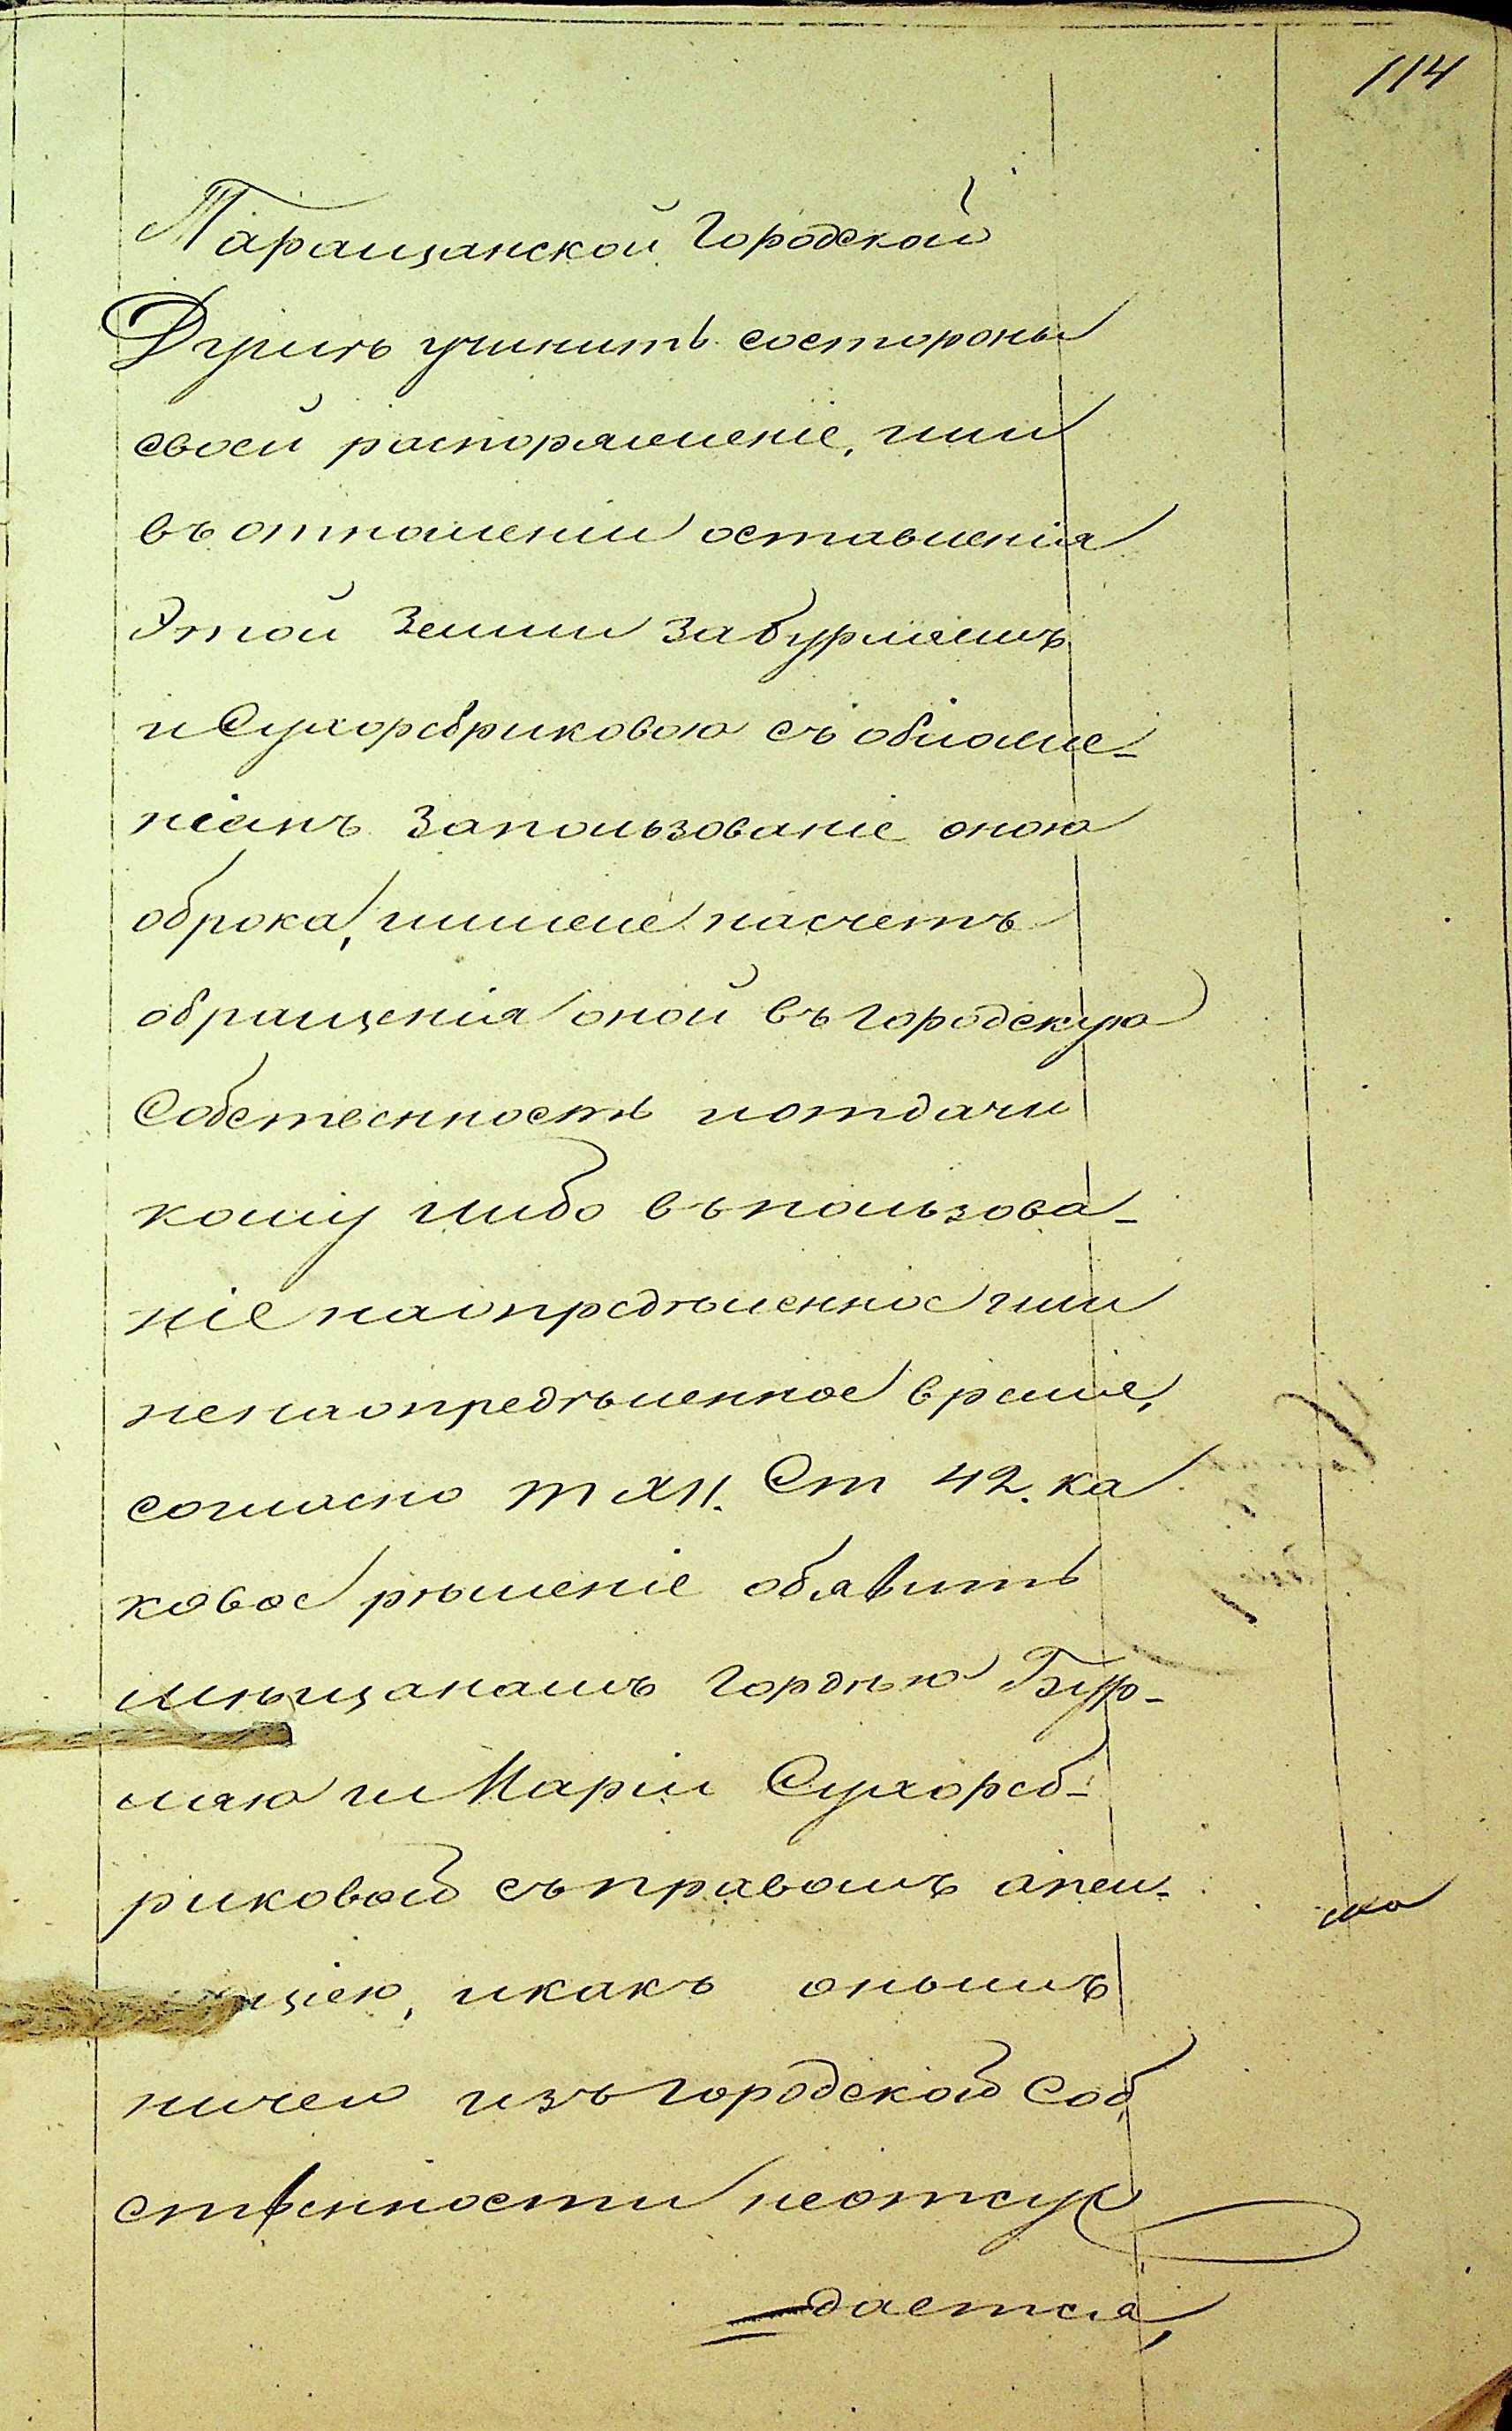 114
Таращанской Городской
Думѣ учинить состороны
своей распоряженіе, или
въ отношеніи оставленія
Этой Земли за Бурлаемъ
и Сухоребриковою съ обложе-
ніемъ За пользованіе оною
оброка, или же насчетъ
обращенія оной въ городскую
Собственность и отдачи
кому либо въ пользова-
ніе на опредѣленное или
не на опредѣленное время,
согласно т XII. Ст 42. ка
ковое рѣшеніе обявить
мѣщанамъ Гордѣю Бур-
лаю и Маріи Сухореб-
риковой съ правомъ апел-
ціею, и какъ онымъ
ничего изъ городской Соб
ственности неотсуж
дается,